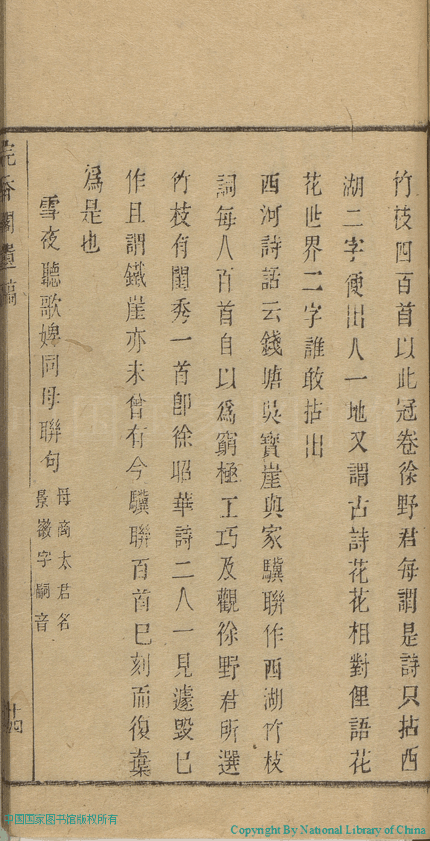 竹枝四百首以此冠卷徐野君每謂是詩只拈西
湖二字便出人一地又謂古詩花花相對俚語花
花世界二字誰敢拈出
西河詩話云錢塘吳寶崖與家驥聯作西湖竹枝
詞每人百首自以爲窮極工巧及觀徐野君所選
竹枝有閨秀一首卽徐昭華詩二人一見遽毀已
作且謂鐵崖亦未曾有今驥聯百首已刻而復棄
爲是也
雪夜聽歌婢同母聯句
母商太君名
景徽字嗣音
遺稿
十四
中国国家图书馆版权所有
Copyright By National Library of China